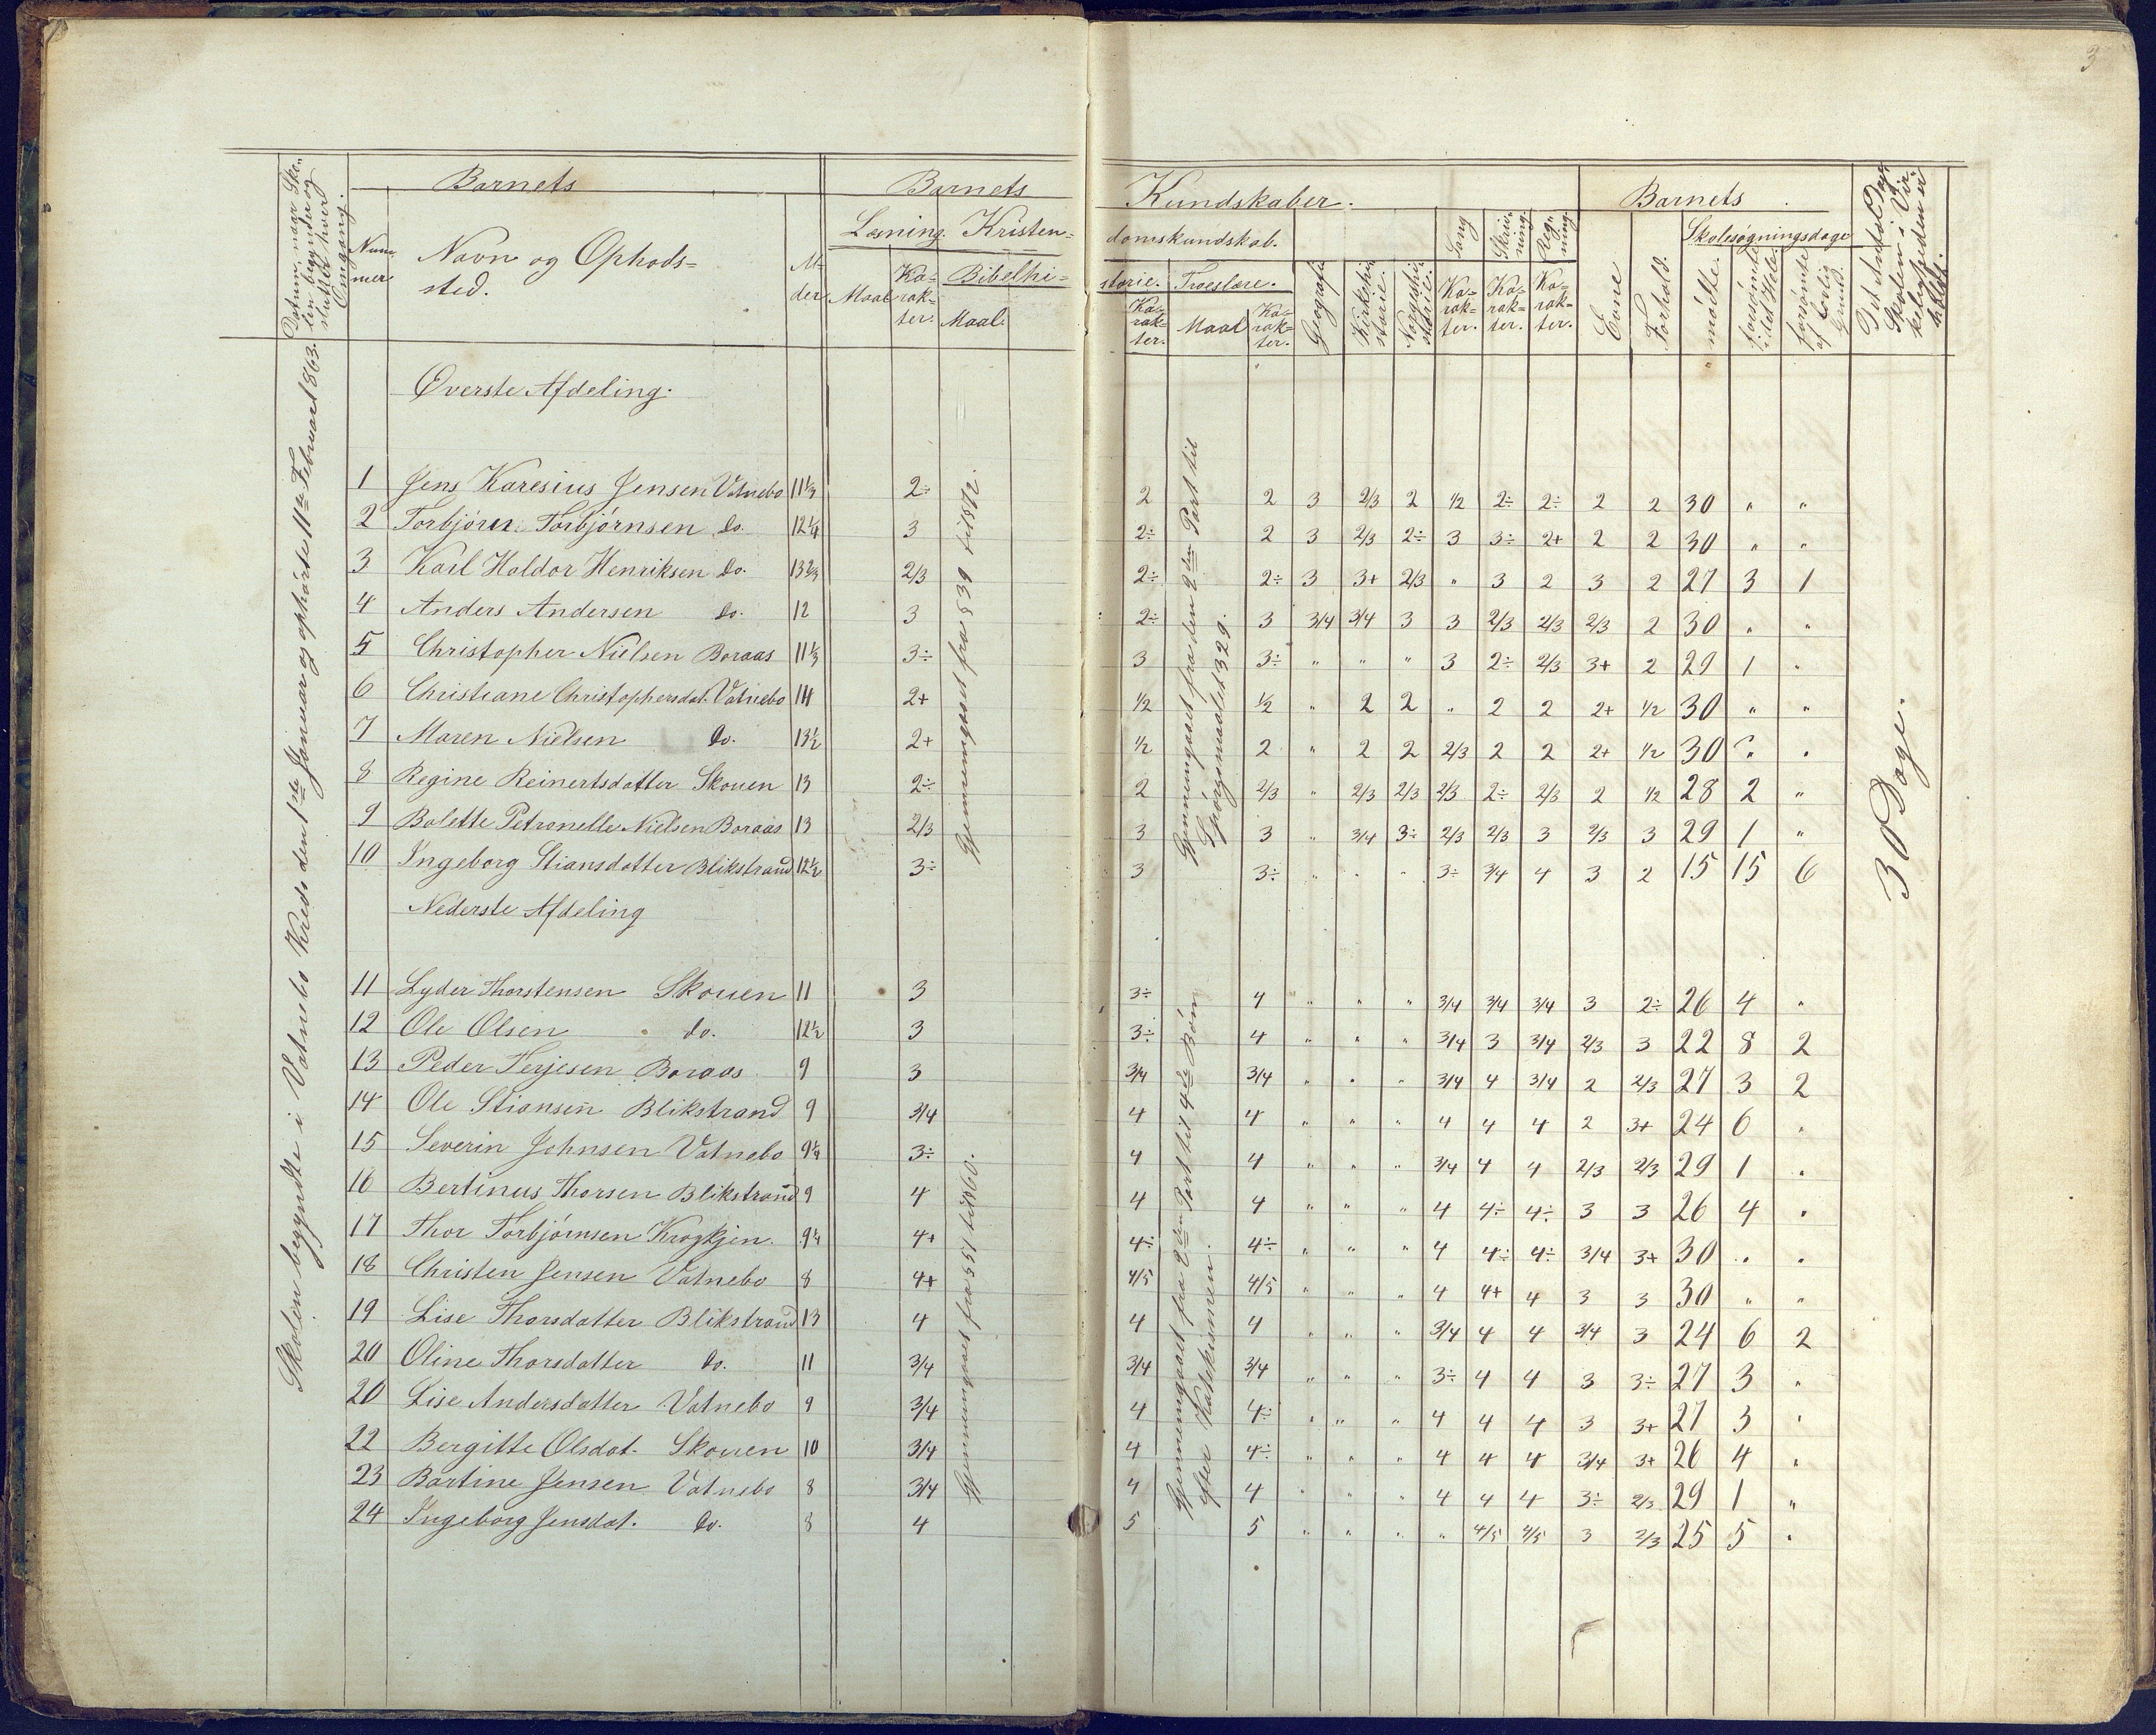 3
Datum, naar Skolen begynder og sluttet hver Omgang.
Barnets
Nummer
Navn og Opholdssted.
Alder
Barnets
Læsning.
Kristen=
Maal
Karakter.
Bibelhi=
Maal.
Kundskaber.
domskundskab.
storie.
Troeslære.
Karakter.
Maal
Karakter.
Geografi
Kirkehistorie.
Norgeshistorie.
Sang
Karakter.
Skrivning.
Karakter.
Regning.
Karakter.
Barnets
Evne
Forhold.
Skolesøgningsdage
mødte.
forsømte i det Hele
forsømte af lovlig Grund.
Det Antal Dage Skolen i Virkeligheden er holdt.
Skolen begyndte i Vatnebo Kreds den 1ste Januar og ophørte 11te Februar 1863.
Øverste Afdeling.
1 Jens Karesius Jensen Vatnebo 11⅓ 2÷ 2 2 3 2/3 2 1/2 2÷ 2÷ 2 2 30 " "
2 Torbjørn Torbjørnsen do. 12¼ 3 2÷ 2 3 2/3 2÷ 3 3÷ 2+ 2 2 30 " "
3 Karl Haldor Henriksen do. 13⅔ 2/3 2÷ 2÷ 3 3+ 2/3 " 3 2 3 2 27 3 1
4 Anders Andersen do. 12 3 2÷ 3 3/4 3/4 3 3 2/3 2/3 2/3 2 30 " "
5 Christopher Nielsen Boraas 11⅓ 3÷ 3 3÷ " " " 3 2÷ 2/3 3+ 2 29 1 "
6 Christiane Christophersdat. Vatnebo 14 2+ 1/2 1/2 " 2 2 " 2 2 2+ 1/2 30 " "
7 Maren Nielsen do. 13½ 2+ 1/2 2 " 2 2 2/3 2 2 2+ 1/2 30 " "
8 Regine Reinertsdatter Skouen 13 2÷ 2 2/3 " 2/3 2/3 2/3 2÷ 2/3 2 1/2 28 2 "
9 Bolette Petronelle Nielsen Boraas 13 2/3 3 3 " 3/4 3÷ 2/3 2/3 3 2/3 3 29 1 "
10 Ingeborg Stiansdatter Blikstrand 12½ 3÷ 3 3÷ " " " 3÷ 3/4 4 3 2 15 15 6
Gjennemgaaet fra § 39 til 872.
Gjennemgaaet fra den 2den Part til
Spørgsmaalet 329.
30 Dage.
Nederste Afdeling
11 Lyder Thorstensen Skouen 11 3 3÷ 4 " " " 3/4 3/4 3/4 3 2÷ 26 4 "
12 Ole Olsen do. 12½ 3 3÷ 4 " " " 3/4 3 3/4 2/3 3 22 8 2
13 Peder Terjesen Boraas 9 3 3/4 3/4 " " " 3/4 4 3/4 2 2/3 27 3 2
14 Ole Stiansen Blikstrand 9 3/4 4 4 " " " 4 4 4 2 3+ 24 6 "
15 Severin Johnsen Vatnebo 9¼ 3÷ 4 4 " " " 3/4 4 4 2/3 2/3 29 1 "
16 Bertinus Thorsen Blikstrand 9 4 4 4 " " " 4 4÷ 4÷ 3 3 26 4 "
17 Thor Torbjørnsen Krogkjen. 9¼ 4+ 4÷ 4÷ " " " 4 4÷ 4÷ 3/4 3+ 30 " "
18 Christen Jensen Vatnebo 8 4+ 4/5 4/5 " " " 4 4+ 4 3 3 30 " "
19 Lise Thorsdatter Blikstrand 13 4 4 4 " " " 3/4 4 4 3/4 3 24 6 2
20 Oline Thorsdatter do. 11 3/4 3/4 3/4 " " " 3÷ 4 4 3 3÷ 27 3 "
20 Lise Andersdatter Vatnebo 9 3/4 4 4÷ " " " 4 4 4 3 3+ 27 3 "
22 Bergitte Olsdat. Skouen 10 3/4 4 4÷ " " " 4 4 4 3/4 3+ 26 4 "
23 Bartine Jensen Vatnebo 8 3/4 4 4 " " " 4 4 4 3÷ 2/3 29 1 "
24 Ingeborg Jensdat. do. 8 4 5 5 " " " " 4/5 4/5 3 2/3 25 5 "
Gjennemgaaet fra § 51 til § 60.
Gjennemgaaet fra 2den Part til 4de Bøn
efter Katekismen.